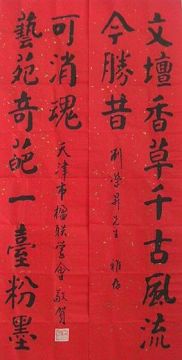 文壇香草千古風流
今勝昔
先生 雅
藝苑奇葩一臺粉墨
可消魂
天津市楹联学會敬賀